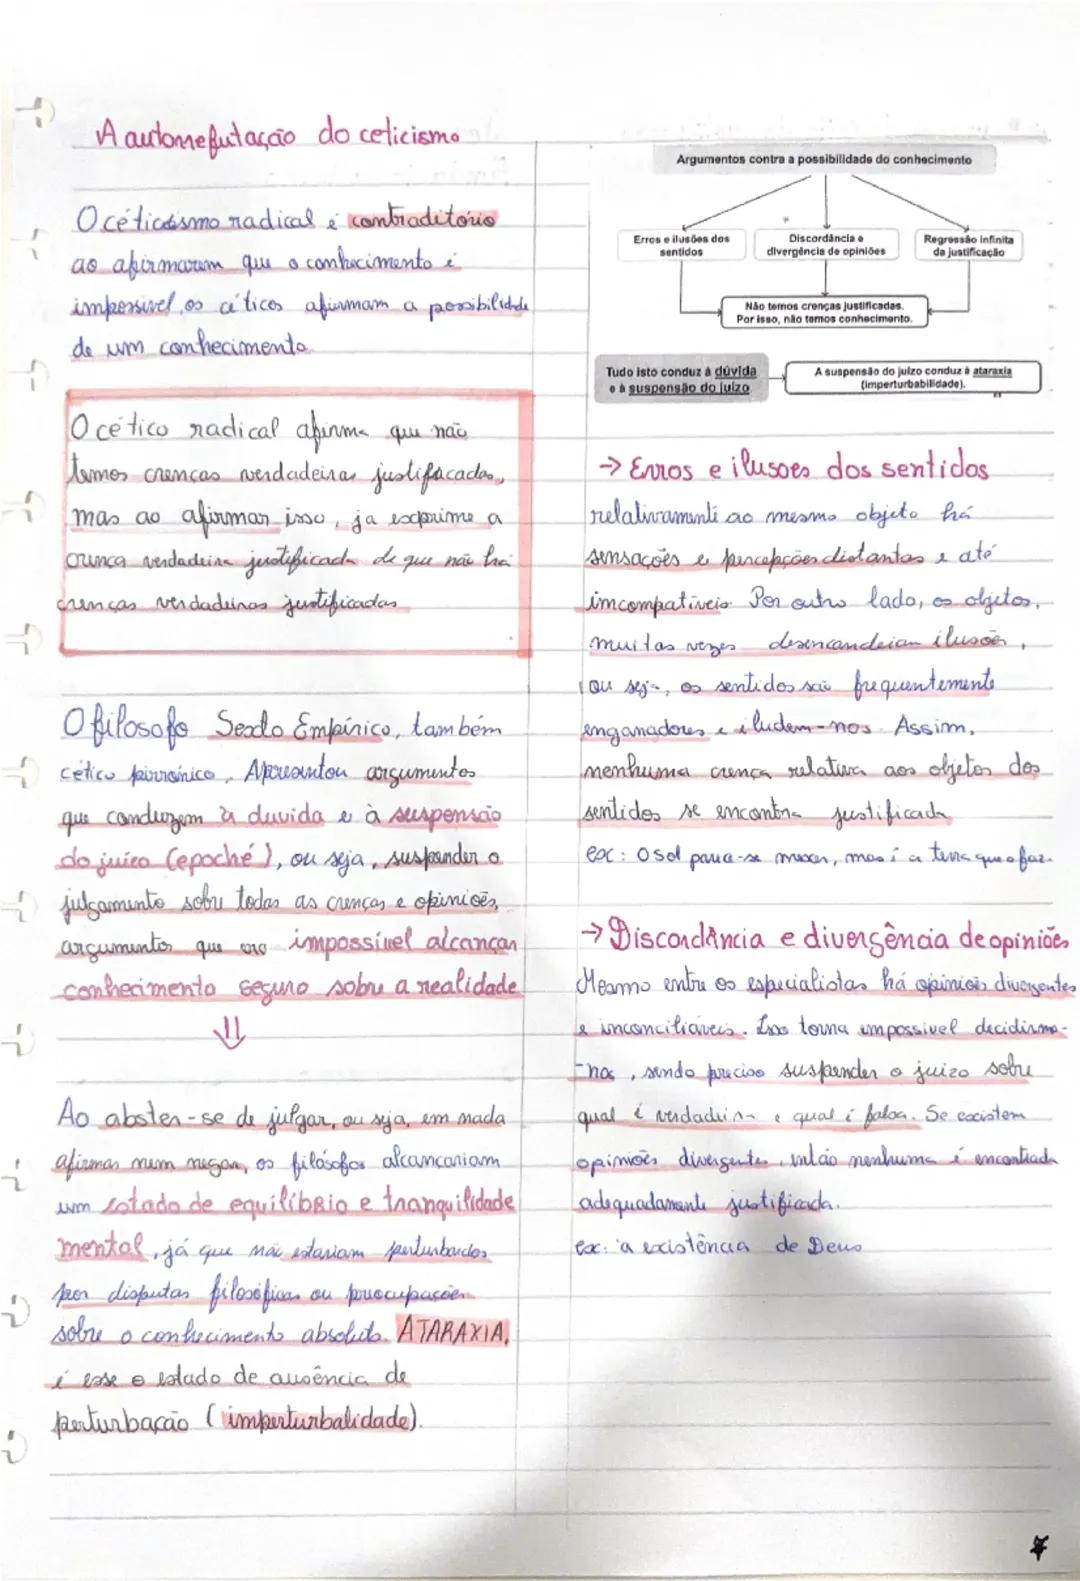 A autorrefutação do ceticismo
O céticismo radical é contraditório
ao afirmarem que o conhecimento é
impossivel, os céticos afirmam a possibilidade
de um conhecimento.
O cético radical afirma que não
temos crenças verdadeiras justificadas,
mas ao afirmar isso, ja exprime a
crença verdadeira justificada de que não há
crenças verdadeiras justificadas
O filosofo Sexto Empírico, também
cético pirrónico, Apresentou argumentos
que conduzem à duvida e à suspensão
do juízo (epoché), ou seja, suspender o
julgamento sobre todas as crenças e opiniões,
argumentos que era impossível alcançar
conhecimento seguro sobre a realidade
Ao abster-se de julgar, ou seja, em nada
afirmar nem negar, os filósofos alcançariam
um estado de equilíbrio e tranquilidade
mental, já que não estariam perturbados
por disputas filosóficas ou preocupações
sobre o conhecimento absoluto. ATARAXIA,
é esse o estado de ausência de
perturbação (imperturbalidade).
Argumentos contra a possibilidade do conhecimento
Erros e ilusões dos
sentidos
Discordância e
divergência de opiniões
Regressão infinita
da justificação
Não temos crenças justificadas.
Por isso, não temos conhecimento.
Tudo isto conduz à dúvida
e à suspensão do juízo
A suspensão do juízo conduz à ataraxia
(imperturbabilidade).
→ Erros e ilusões dos sentidos
relativamente ao mesmo objeto há
sensações e percepções distantas e até
imcompatíveis. Por outro lado, os objetos,
muitas vezes desencandeiam ilusões,
ou seja, os sentidos são frequentemente
enganadores e iludem-nos. Assim,
nenhuma crença relativa aos objetos dos
sentidos se encontra justificada
ex: O sol parece-se mexer, mas é a terra que o faz.
→ Discordância e divergência de opiniões
Mesmo entre os especialistas há opiniões divergentes
e inconciliáveis. Isso torna impossivel decidirmo-
-nos, sendo preciso suspender o juizo sobre
qual é verdadeira e qual é falsa. Se existem
opiniões divergentes, então nenhuma é encontrada
adequadamente justificada.
ex: a existência de Deus